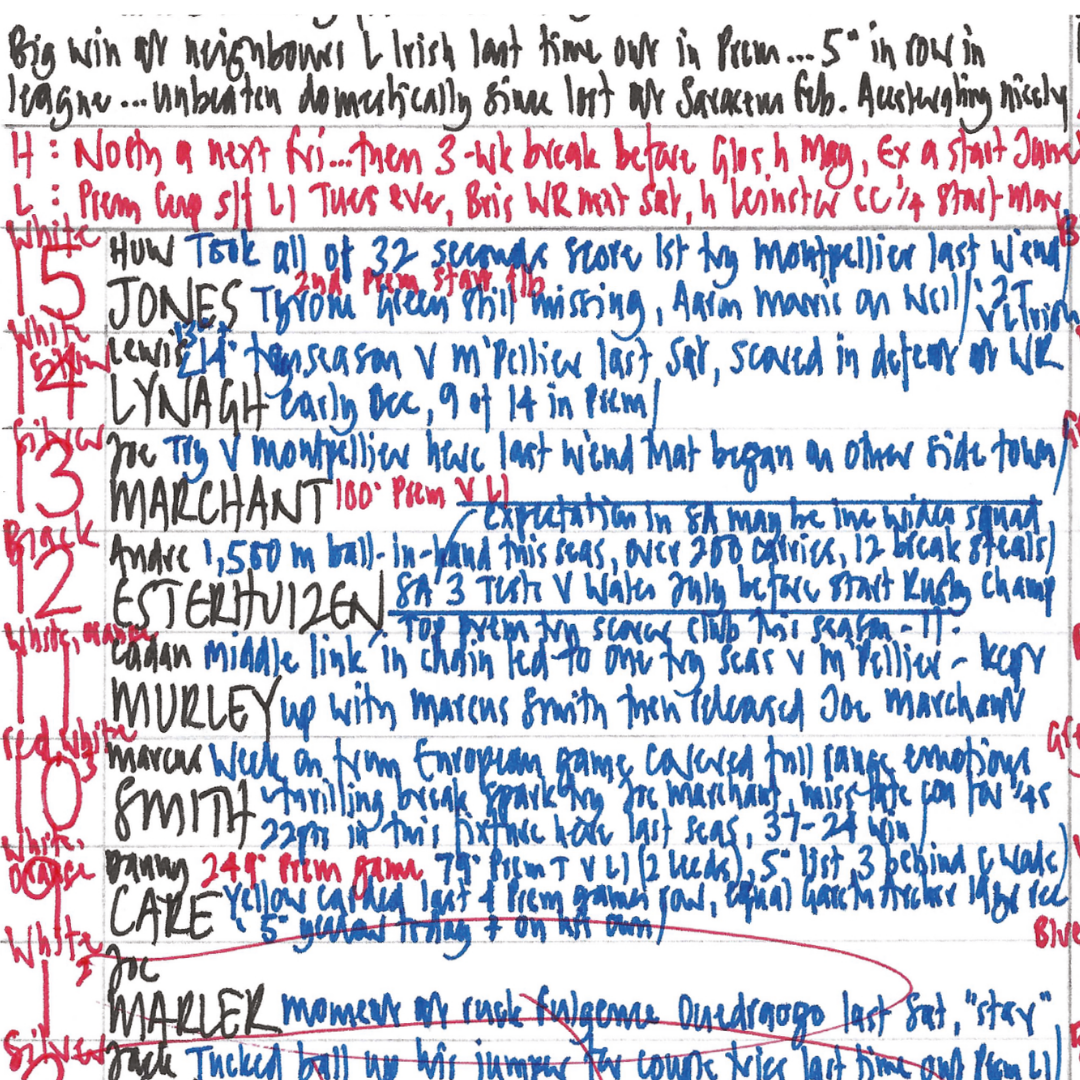 Big win at neighbours L Irish last time out in Prem... 5th in row in
league... unbeaten domestically since lost at Saracens Feb. Accelerating nicely
H : North a next fri... then 3-wk break before Glos h May, Ex a start June
L : Prem Cup s/f LI Tues eve, Bris WR next Sat, h Leinster CC 1/4 start May
White
15
HUW Took all of 32 seconds score 1st try Montpellier last w'end
2nd Prem start f/b
JONES Tyrone Green still missing, Aaron Morris on Well/
White
14
Lewis try season v M'Pellier last Sat, scored in defeat at WR
LYNAGH early Dec, 9 of 14 in Prem/
Silver
13
Joe Try v Montpellier here last w'end that began on other side town/
MARCHANT 100th Prem v LI
Expectation in SA may be inc wider squad
Black
12
Andre 1,580 m ball-in-hand this seas, over 200 carries, 12 break steals/
ESTERHUIZEN SA 3 Tests v Wales July before start Rugby Champ
Top Prem try scorer club this season - 11.
White, orange
11
Cadan middle link in chain led to one try seas v M'Pellier - kept
MURLEY up with Marcus Smith then released Joe Marchant
red, white
10
Marcus Week on from European game covered full range emotions
SMITH - thrilling break spark try Joe Marchant, miss late con for 1/4s
22pts in this fixture here last seas, 37-24 won
White, orange
9
Danny 249th Prem game 79th Prem T v LI (2 Leeds), 5th list 3 behind C Wade/
CARE Yellow carded last 4 Prem games row, equal Gareth Archer lge rec
5th yellow today + on his own/
White
1
Joe
MARLER moment at ruck Fulgence Ouedraogo last Sat, "stay"
Silver
Jack Tucked ball up his jumper for couple tries last time out Prem LI/
Blue